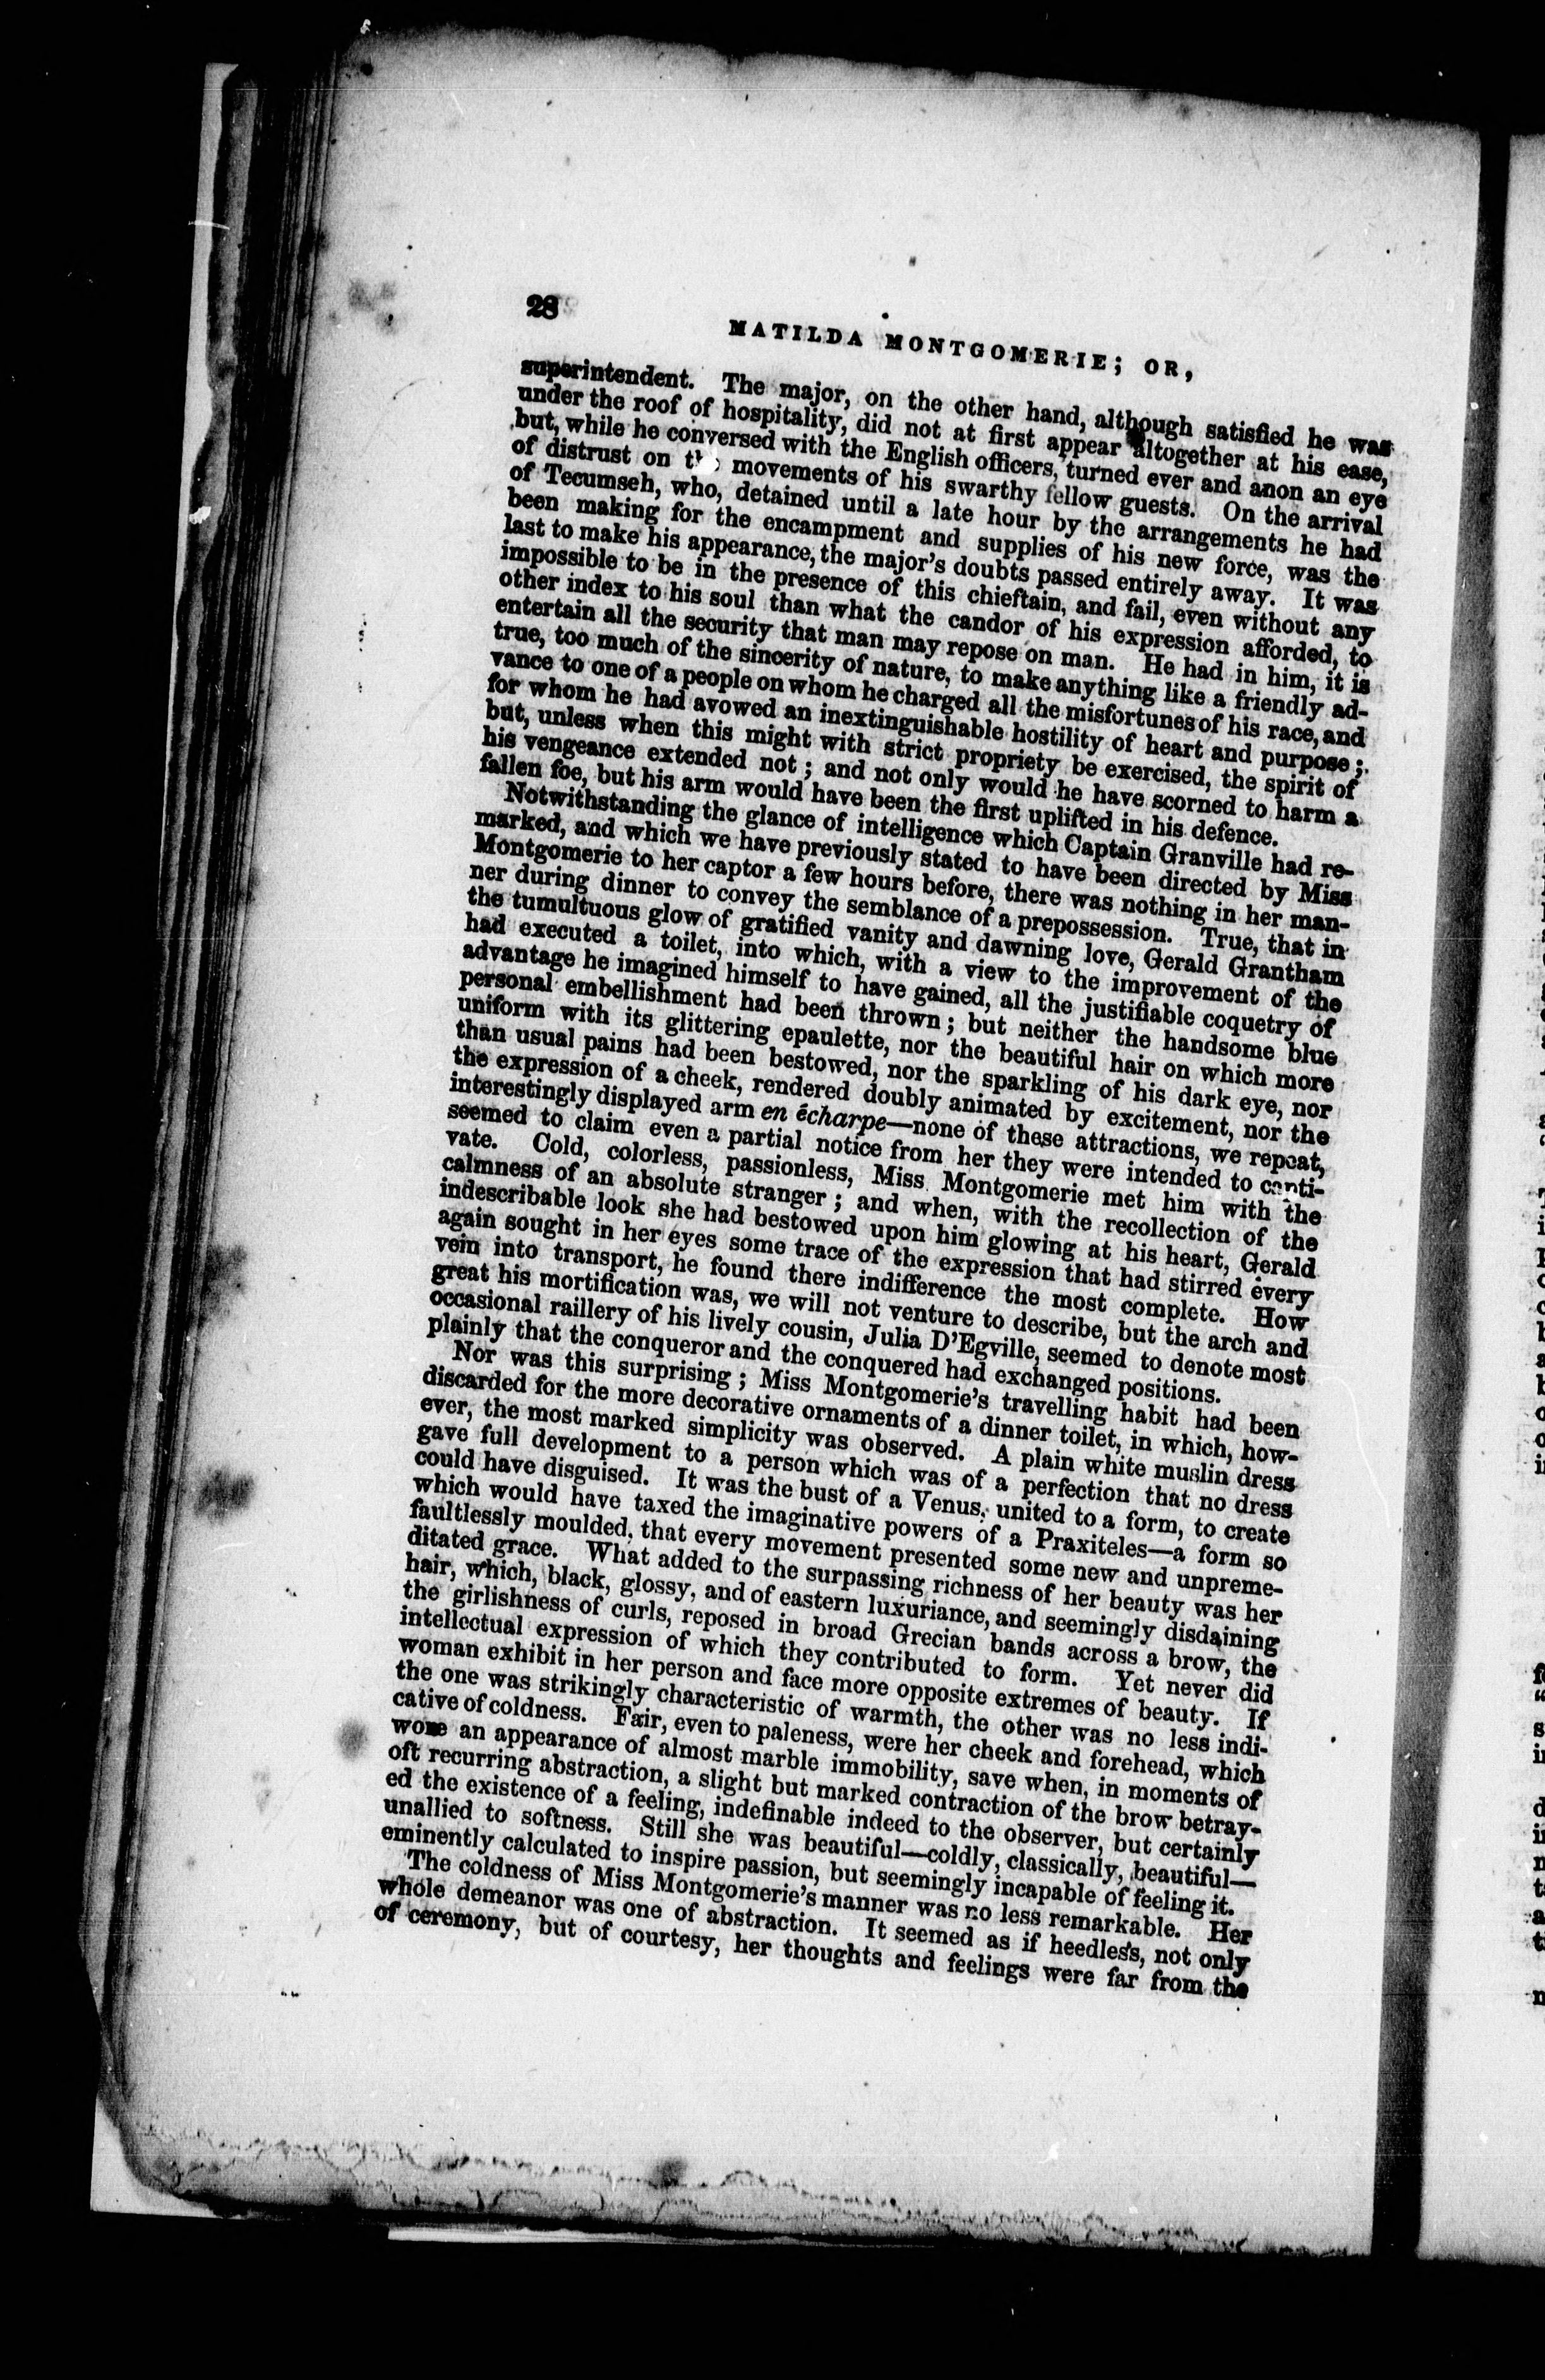 28
MATILDA MONTGOMERIE; OR,
superintendent. The major, on the other hand, although satisfied he was
under the roof of hospitality, did not at first appear altogether at his ease,
but, while he conversed with the English officers, turned ever and anon an eye
of distrust on the movements of his swarthy fellow guests. On the arrival
of Tecumseh, who, detained until a late hour by the arrangements he had
been making for the encampment and supplies of his new force, was the
last to make his appearance, the major's doubts passed entirely away. It was
impossible to be in the presence of this chieftain, and fail, even without any
other index to his soul than what the candor of his expression afforded, to
entertain all the security that man may repose on man. He had in him, it is
true, too much of the sincerity of nature, to make anything like a friendly ad-
vance to one of a people on whom he charged all the misfortunes of his race, and
for whom he had avowed an inextinguishable hostility of heart and purpose;
but, unless when this might with strict propriety be exercised, the spirit of
his vengeance extended not; and not only would he have scorned to harm a
fallen foe, but his arm would have been the first uplifted in his defence.
Notwithstanding the glance of intelligence which Captain Granville had re-
marked, and which we have previously stated to have been directed by Miss
Montgomerie to her captor a few hours before, there was nothing in her man-
ner during dinner to convey the semblance of a prepossession. True, that in
the tumultuous glow of gratified vanity and dawning love, Gerald Grantham
had executed a toilet, into which, with a view to the improvement of the
advantage he imagined himself to have gained, all the justifiable coquetry of
personal embellishment had been thrown; but neither the handsome blue
uniform with its glittering epaulette, nor the beautiful hair on which more
than usual pains had been bestowed, nor the sparkling of his dark eye, nor
the expression of a cheek, rendered doubly animated by excitement, nor the
interestingly displayed arm en écharpe—none of these attractions, we repeat,
seemed to claim even a partial notice from her they were intended to capti-
vate. Cold, colorless, passionless, Miss Montgomerie met him with the
calmness of an absolute stranger; and when, with the recollection of the
indescribable look she had bestowed upon him glowing at his heart, Gerald
again sought in her eyes some trace of the expression that had stirred every
vein into transport, he found there indifference the most complete. How
great his mortification was, we will not venture to describe, but the arch and
occasional raillery of his lively cousin, Julia D'Egville, seemed to denote most
plainly that the conqueror and the conquered had exchanged positions.
Nor was this surprising; Miss Montgomerie's travelling habit had been
discarded for the more decorative ornaments of a dinner toilet, in which, how-
ever, the most marked simplicity was observed. A plain white muslin dress
gave full development to a person which was of a perfection that no dress
could have disguised. It was the bust of a Venus, united to a form, to create
which would have taxed the imaginative powers of a Praxiteles—a form so
faultlessly moulded, that every movement presented some new and unpreme-
ditated grace. What added to the surpassing richness of her beauty was her
hair, which, black, glossy, and of eastern luxuriance, and seemingly disdaining
the girlishness of curls, reposed in broad Grecian bands across a brow, the
intellectual expression of which they contributed to form. Yet never did
woman exhibit in her person and face more opposite extremes of beauty. If
the one was strikingly characteristic of warmth, the other was no less indi-
cative of coldness. Fair, even to paleness, were her cheek and forehead, which
wore an appearance of almost marble immobility, save when, in moments of
oft recurring abstraction, a slight but marked contraction of the brow betray-
ed the existence of a feeling, indefinable indeed to the observer, but certainly
unallied to softness. Still she was beautiful—coldly, classically, beautiful—
eminently calculated to inspire passion, but seemingly incapable of feeling it.
The coldness of Miss Montgomerie's manner was no less remarkable. Her
whole demeanor was one of abstraction. It seemed as if heedless, not only
of ceremony, but of courtesy, her thoughts and feelings were far from the